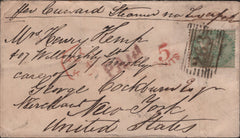 per Cunard Steamer via Liverpool
Mrs Henry Kemp
47 Willoughby Street
care of
George Cockburn Esqr
Merchant
New York
United States
Paid
5